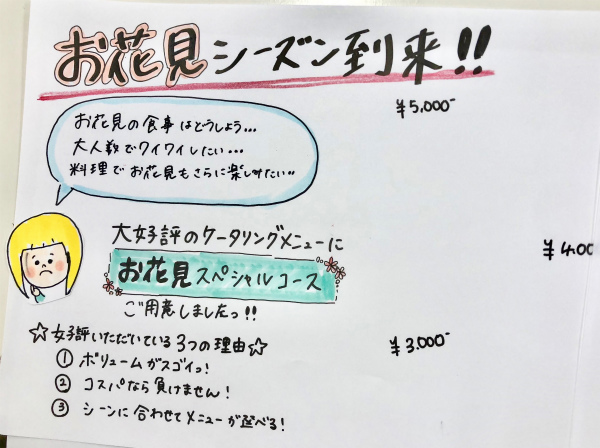 お花見シーズン到来!!
¥5,000-
お花見の食事はどうしよう...
大人数でワイワイしたい...
料理でお花見もさらに楽しみたい..
大好評のケータリングメニューに
¥4.00
お花見スペシャルコース
ご用意しましたっ!!
☆女子評いただいている3つの理由☆
¥3.000-
① ボリュームがスゴイっ!
② コスパなら負けません!
③ シーンに合わせてメニューが選べる!